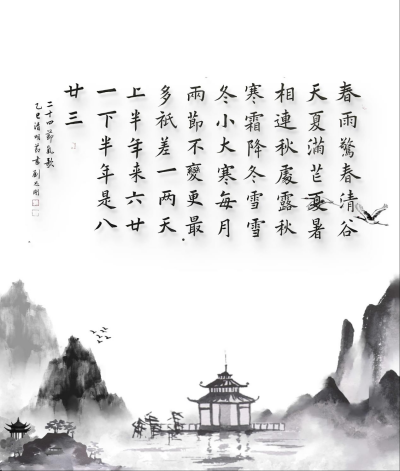 春雨驚春清谷
天夏满芒夏暑
相連秋處露秋
寒霜降冬雪雪
冬小大寒每月
兩節不變更最
多祇差一两天
上半年来六廿
一下半年是八
廿三
二十四節氣歌
乙巳清明前書劉